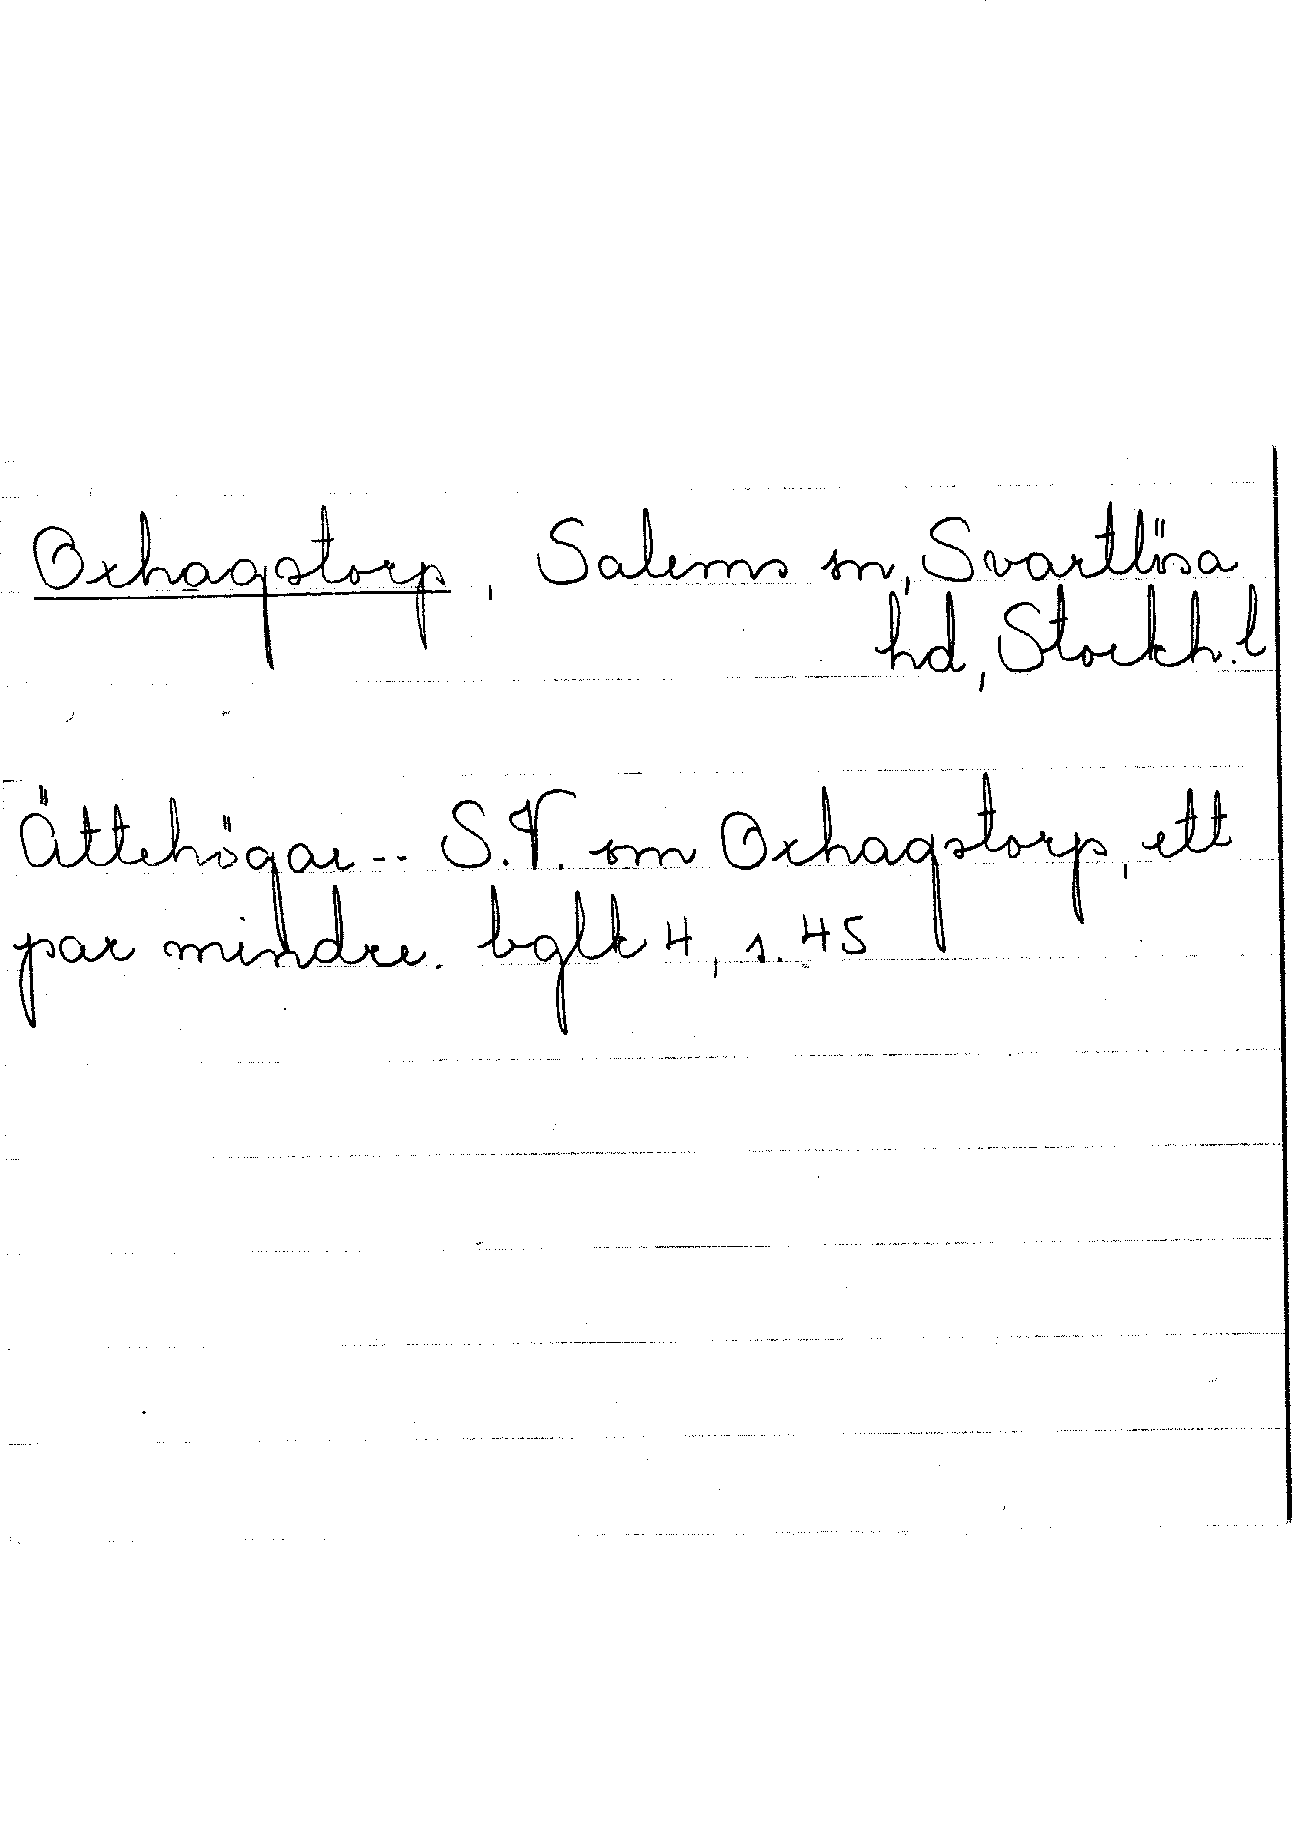 Oxhagstorp, Salems sn, Svartlösa
hd, Stockh. l
Ättehögar -- S.V. om Oxhagstorp, ett
par mindre. bglk 4, s. 45